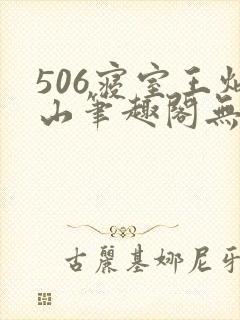 506寝室王灿
山笔趣阁無
古麗基娜尼牙